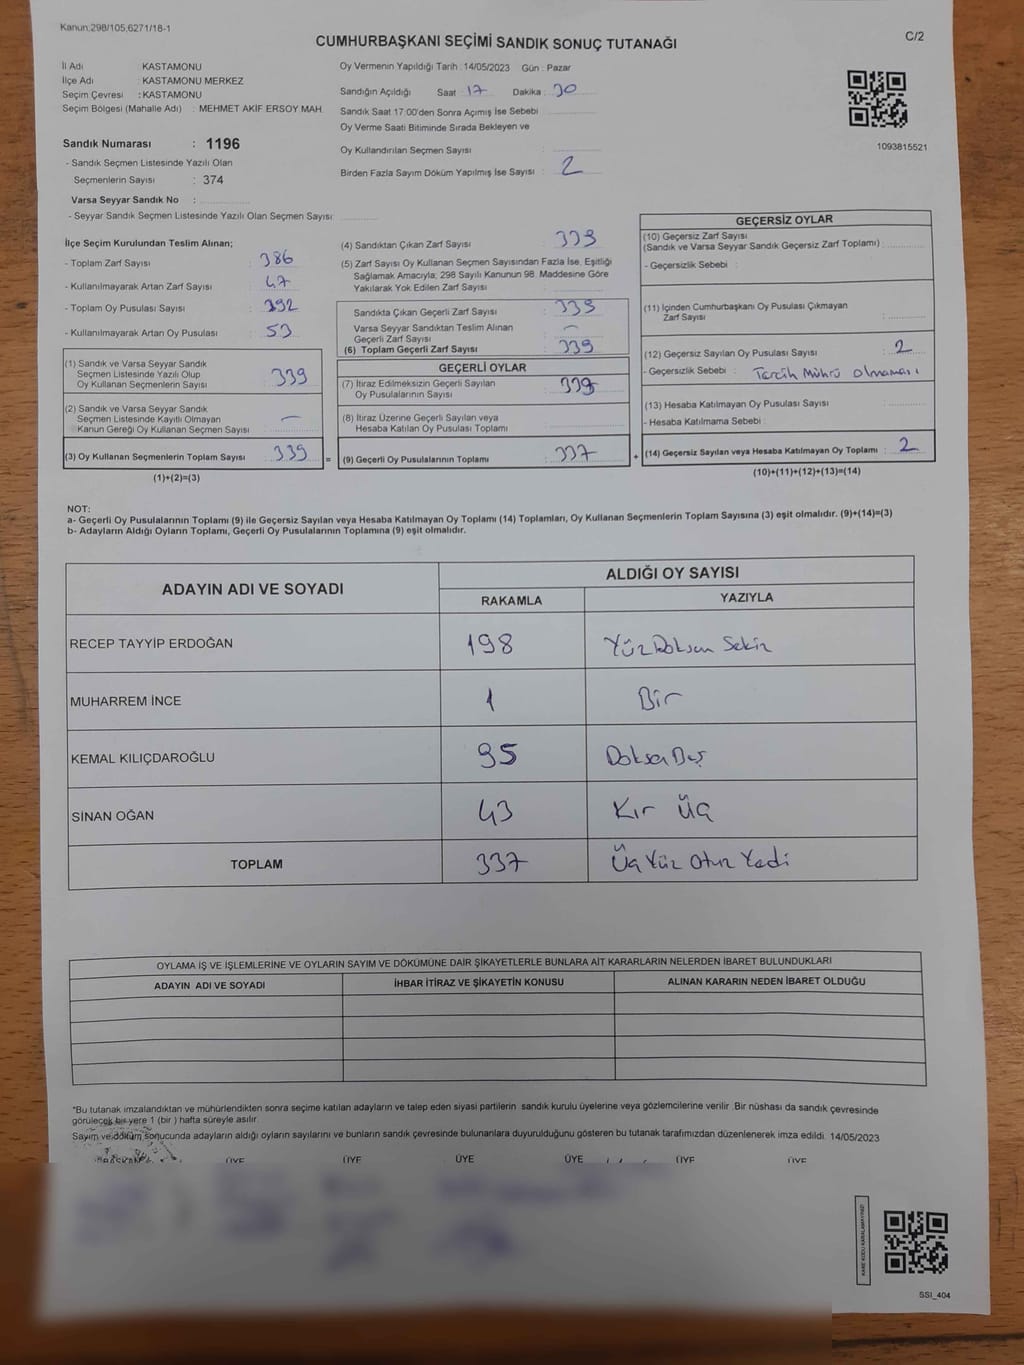 Kanun;298/105;6271/18-1
CUMHURBAŞKANI SEÇİMİ SANDIK SONUÇ TUTANAĞI
C/2
İl Adı KASTAMONU
İlçe Adı : KASTAMONU MERKEZ
Seçim Çevresi : KASTAMONU
Seçim Bölgesi (Mahalle Adı) : MEHMET AKİF ERSOY MAH.
Sandık Numarası : 1196
- Sandık Seçmen Listesinde Yazılı Olan
Seçmenlerin Sayısı : 374
Varsa Seyyar Sandık No :
- Seyyar Sandık Seçmen Listesinde Yazılı Olan Seçmen Sayısı:
Oy Vermenin Yapıldığı Tarih : 14/05/2023 Gün : Pazar
Sandığın Açıldığı Saat : 17 Dakika : 30
Sandık Saat 17:00'den Sonra Açımış İse Sebebi
Oy Verme Saati Bitiminde Sırada Bekleyen ve
Oy Kullandırılan Seçmen Sayısı :
Birden Fazla Sayım Döküm Yapılmış İse Sayısı : 2
1093815521
İlçe Seçim Kurulundan Teslim Alınan;
- Toplam Zarf Sayısı : 386
- Kullanılmayarak Artan Zarf Sayısı : 47
- Toplam Oy Pusulası Sayısı : 392
- Kullanılmayarak Artan Oy Pusulası : 53
(1) Sandık ve Varsa Seyyar Sandık
Seçmen Listesinde Yazılı Olup
Oy Kullanan Seçmenlerin Sayısı : 339
(2) Sandık ve Varsa Seyyar Sandık
Seçmen Listesinde Kayıtlı Olmayan
Kanun Gereği Oy Kullanan Seçmen Sayısı : —
(3) Oy Kullanan Seçmenlerin Toplam Sayısı : 339 =
(1)+(2)=(3)
(4) Sandıktan Çıkan Zarf Sayısı : 339
(5) Zarf Sayısı Oy Kullanan Seçmen Sayısından Fazla İse, Eşitliği
Sağlamak Amacıyla; 298 Sayılı Kanunun 98. Maddesine Göre
Yakılarak Yok Edilen Zarf Sayısı :
Sandıkta Çıkan Geçerli Zarf Sayısı : 339
Varsa Seyyar Sandıktan Teslim Alınan
Geçerli Zarf Sayısı : —
(6) Toplam Geçerli Zarf Sayısı : 339
GEÇERLİ OYLAR
(7) İtiraz Edilmeksizin Geçerli Sayılan
Oy Pusulalarının Sayısı : 339
(8) İtiraz Üzerine Geçerli Sayılan veya
Hesaba Katılan Oy Pusulası Toplamı :
(9) Geçerli Oy Pusulalarının Toplamı : 337 +
GEÇERSİZ OYLAR
(10) Geçersiz Zarf Sayısı
(Sandık ve Varsa Seyyar Sandık Geçersiz Zarf Toplamı) :
- Geçersizlik Sebebi :
(11) İçinden Cumhurbaşkanı Oy Pusulası Çıkmayan
Zarf Sayısı :
(12) Geçersiz Sayılan Oy Pusulası Sayısı : 2
- Geçersizlik Sebebi : Tercih Mührü olmaması
(13) Hesaba Katılmayan Oy Pusulası Sayısı :
- Hesaba Katılmama Sebebi :
(14) Geçersiz Sayılan veya Hesaba Katılmayan Oy Toplamı : 2
(10)+(11)+(12)+(13)=(14)
NOT:
a- Geçerli Oy Pusulalarının Toplamı (9) ile Geçersiz Sayılan veya Hesaba Katılmayan Oy Toplamı (14) Toplamları, Oy Kullanan Seçmenlerin Toplam Sayısına (3) eşit olmalıdır. (9)+(14)=(3)
b- Adayların Aldığı Oyların Toplamı, Geçerli Oy Pusulalarının Toplamına (9) eşit olmalıdır.
ADAYIN ADI VE SOYADI ALDIĞI OY SAYISI
RAKAMLA YAZIYLA
RECEP TAYYİP ERDOĞAN 198 Yüz Doksan Sekiz
MUHARREM İNCE 1 Bir
KEMAL KILIÇDAROĞLU 95 Doksa Beş
SİNAN OĞAN 43 Kır Üç
TOPLAM 337 Üç Yüz Otuz Yedi
OYLAMA İŞ VE İŞLEMLERİNE VE OYLARIN SAYIM VE DÖKÜMÜNE DAİR ŞİKAYETLERLE BUNLARA AİT KARARLARIN NELERDEN İBARET BULUNDUKLARI
ADAYIN ADI VE SOYADI İHBAR İTİRAZ VE ŞİKAYETİN KONUSU ALINAN KARARIN NEDEN İBARET OLDUĞU
*Bu tutanak imzalandıktan ve mühürlendikten sonra seçime katılan adayların ve talep eden siyasi partilerin sandık kurulu üyelerine veya gözlemcilerine verilir. Bir nüshası da sandık çevresinde
görülecek bir yere 1 (bir ) hafta süreyle asılır.
Sayım ve döküm sonucunda adayların aldığı oyların sayılarını ve bunların sandık çevresinde bulunanlara duyurulduğunu gösteren bu tutanak tarafımızdan düzenlenerek imza edildi. 14/05/2023
BAŞKAN ÜYE ÜYE ÜYE ÜYE ÜYE ÜYE
KARE KODU KARALAMAYINIZ!
SSI_404